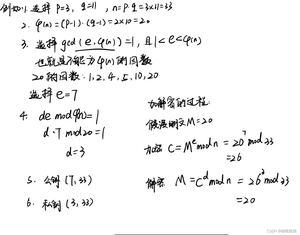 例如1. 选择 p=3, q=11, n=p·q=3×11=33
2. φ(n)=(p-1)·(q-1)=2×10=20
3. 选择 gcd(e,φ(n))=1, 且1<e<φ(n)
也就是不能为φ(n)的因数
20的因数: 1,2,4,5,10,20
选择 e=7
4. de modφ(n)=1
d·7 mod20=1
d=3
5. 公钥 (7,33)
6. 私钥 (3,33)
加解密的过程
假设明文M=20
加密 C=M^e mod n = 20^7 mod 33
=26
解密 M=C^d mod n = 26^3 mod 33
=20